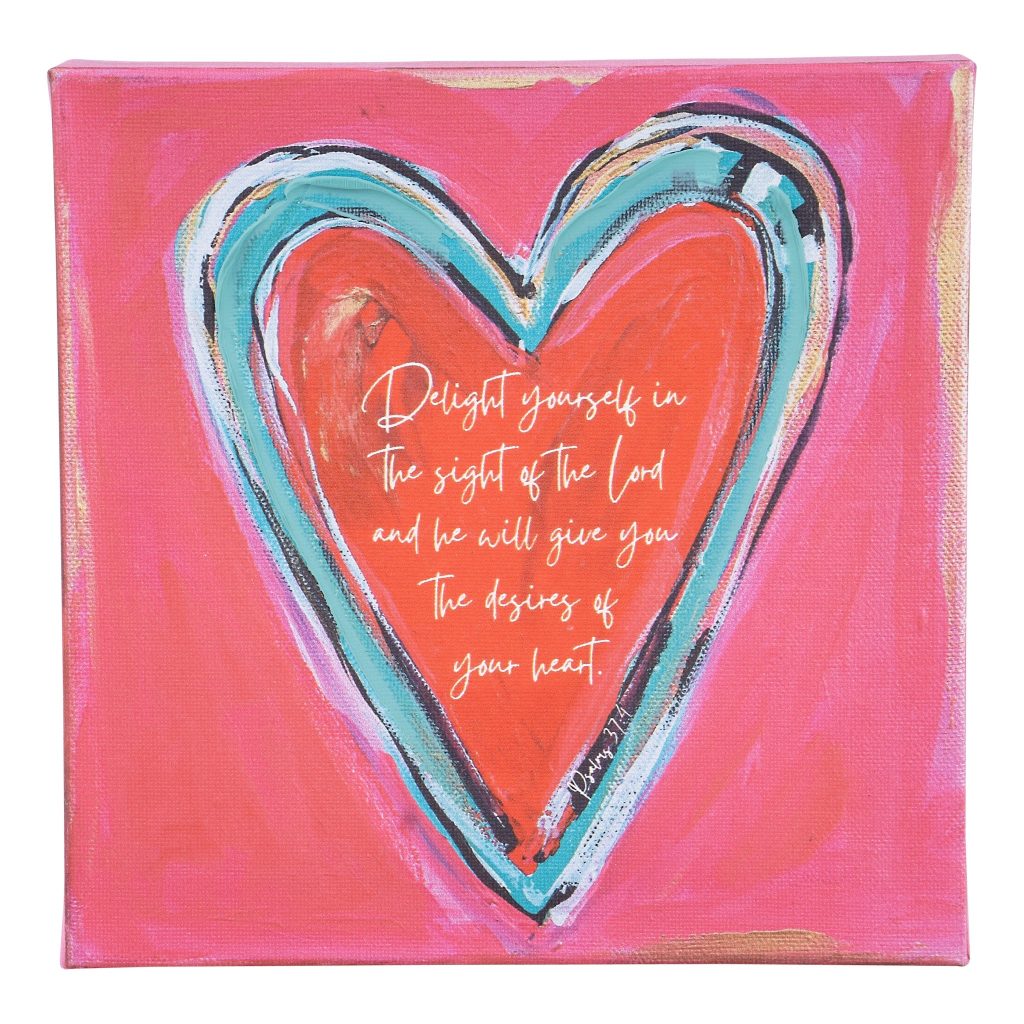 Delight yourself in
the sight of the Lord
and he will give you
the desires of
your heart.
Psalms 37:4